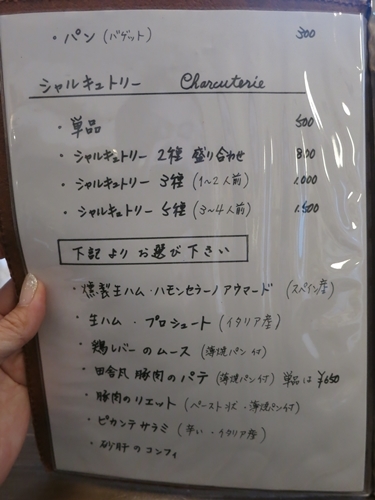 ・パン (バゲット) 300
シャルキュトリー Charcuterie
・単品 500
・シャルキュトリー 2種 盛り合わせ 800
・シャルキュトリー 3種 (1〜2人前) 1,000
・シャルキュトリー 5種 (3〜4人前) 1,500
下記よりお選び下さい
・燻製生ハム・ハモンセラーノ アウマード (スペイン産)
・生ハム・プロシュート (イタリア産)
・鶏レバーのムース (薄焼パン付)
・田舎風豚肉のパテ (薄焼パン付) 単品は ¥650
・豚肉のリエット (ペースト状・薄焼パン付)
・ピカンテサラミ (辛い・イタリア産)
・砂肝のコンフィ